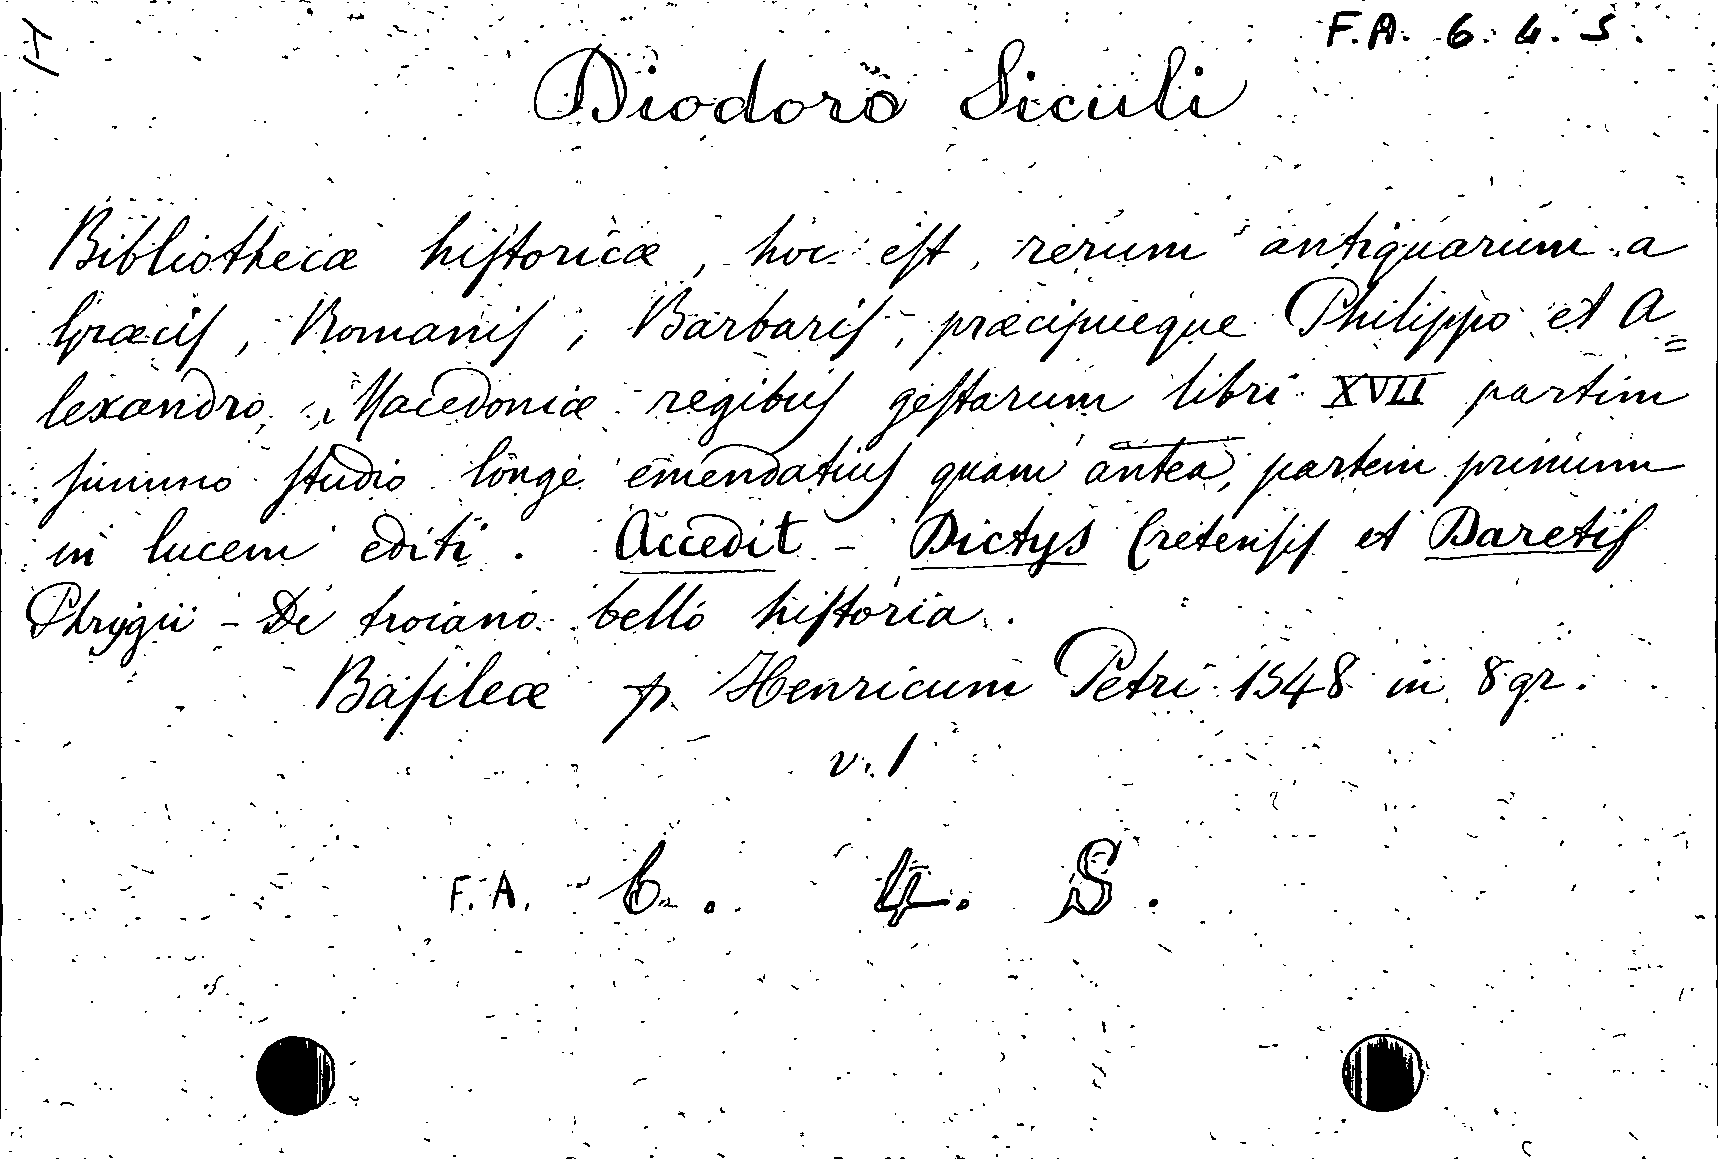 F.A. 6. 4. S.
Diodoro Siculi
Bibliothecæ historicæ, hoc est, rerum antiquarum a
Græcis, Romanis, Barbaris, præcipueque Philippo et A=
lexandro, Macedoniæ regibus gestarum libri XVII partim
summo studio longe emendatius quam antea, partem primum
in lucem editi. Accedit - Dictys Cretensis et Daretis
Phrygii - De troiano bello historia.
Basileæ p. Henricum Petri 1548 in 8 gr.
v. 1
F.A. 6. 4. S.